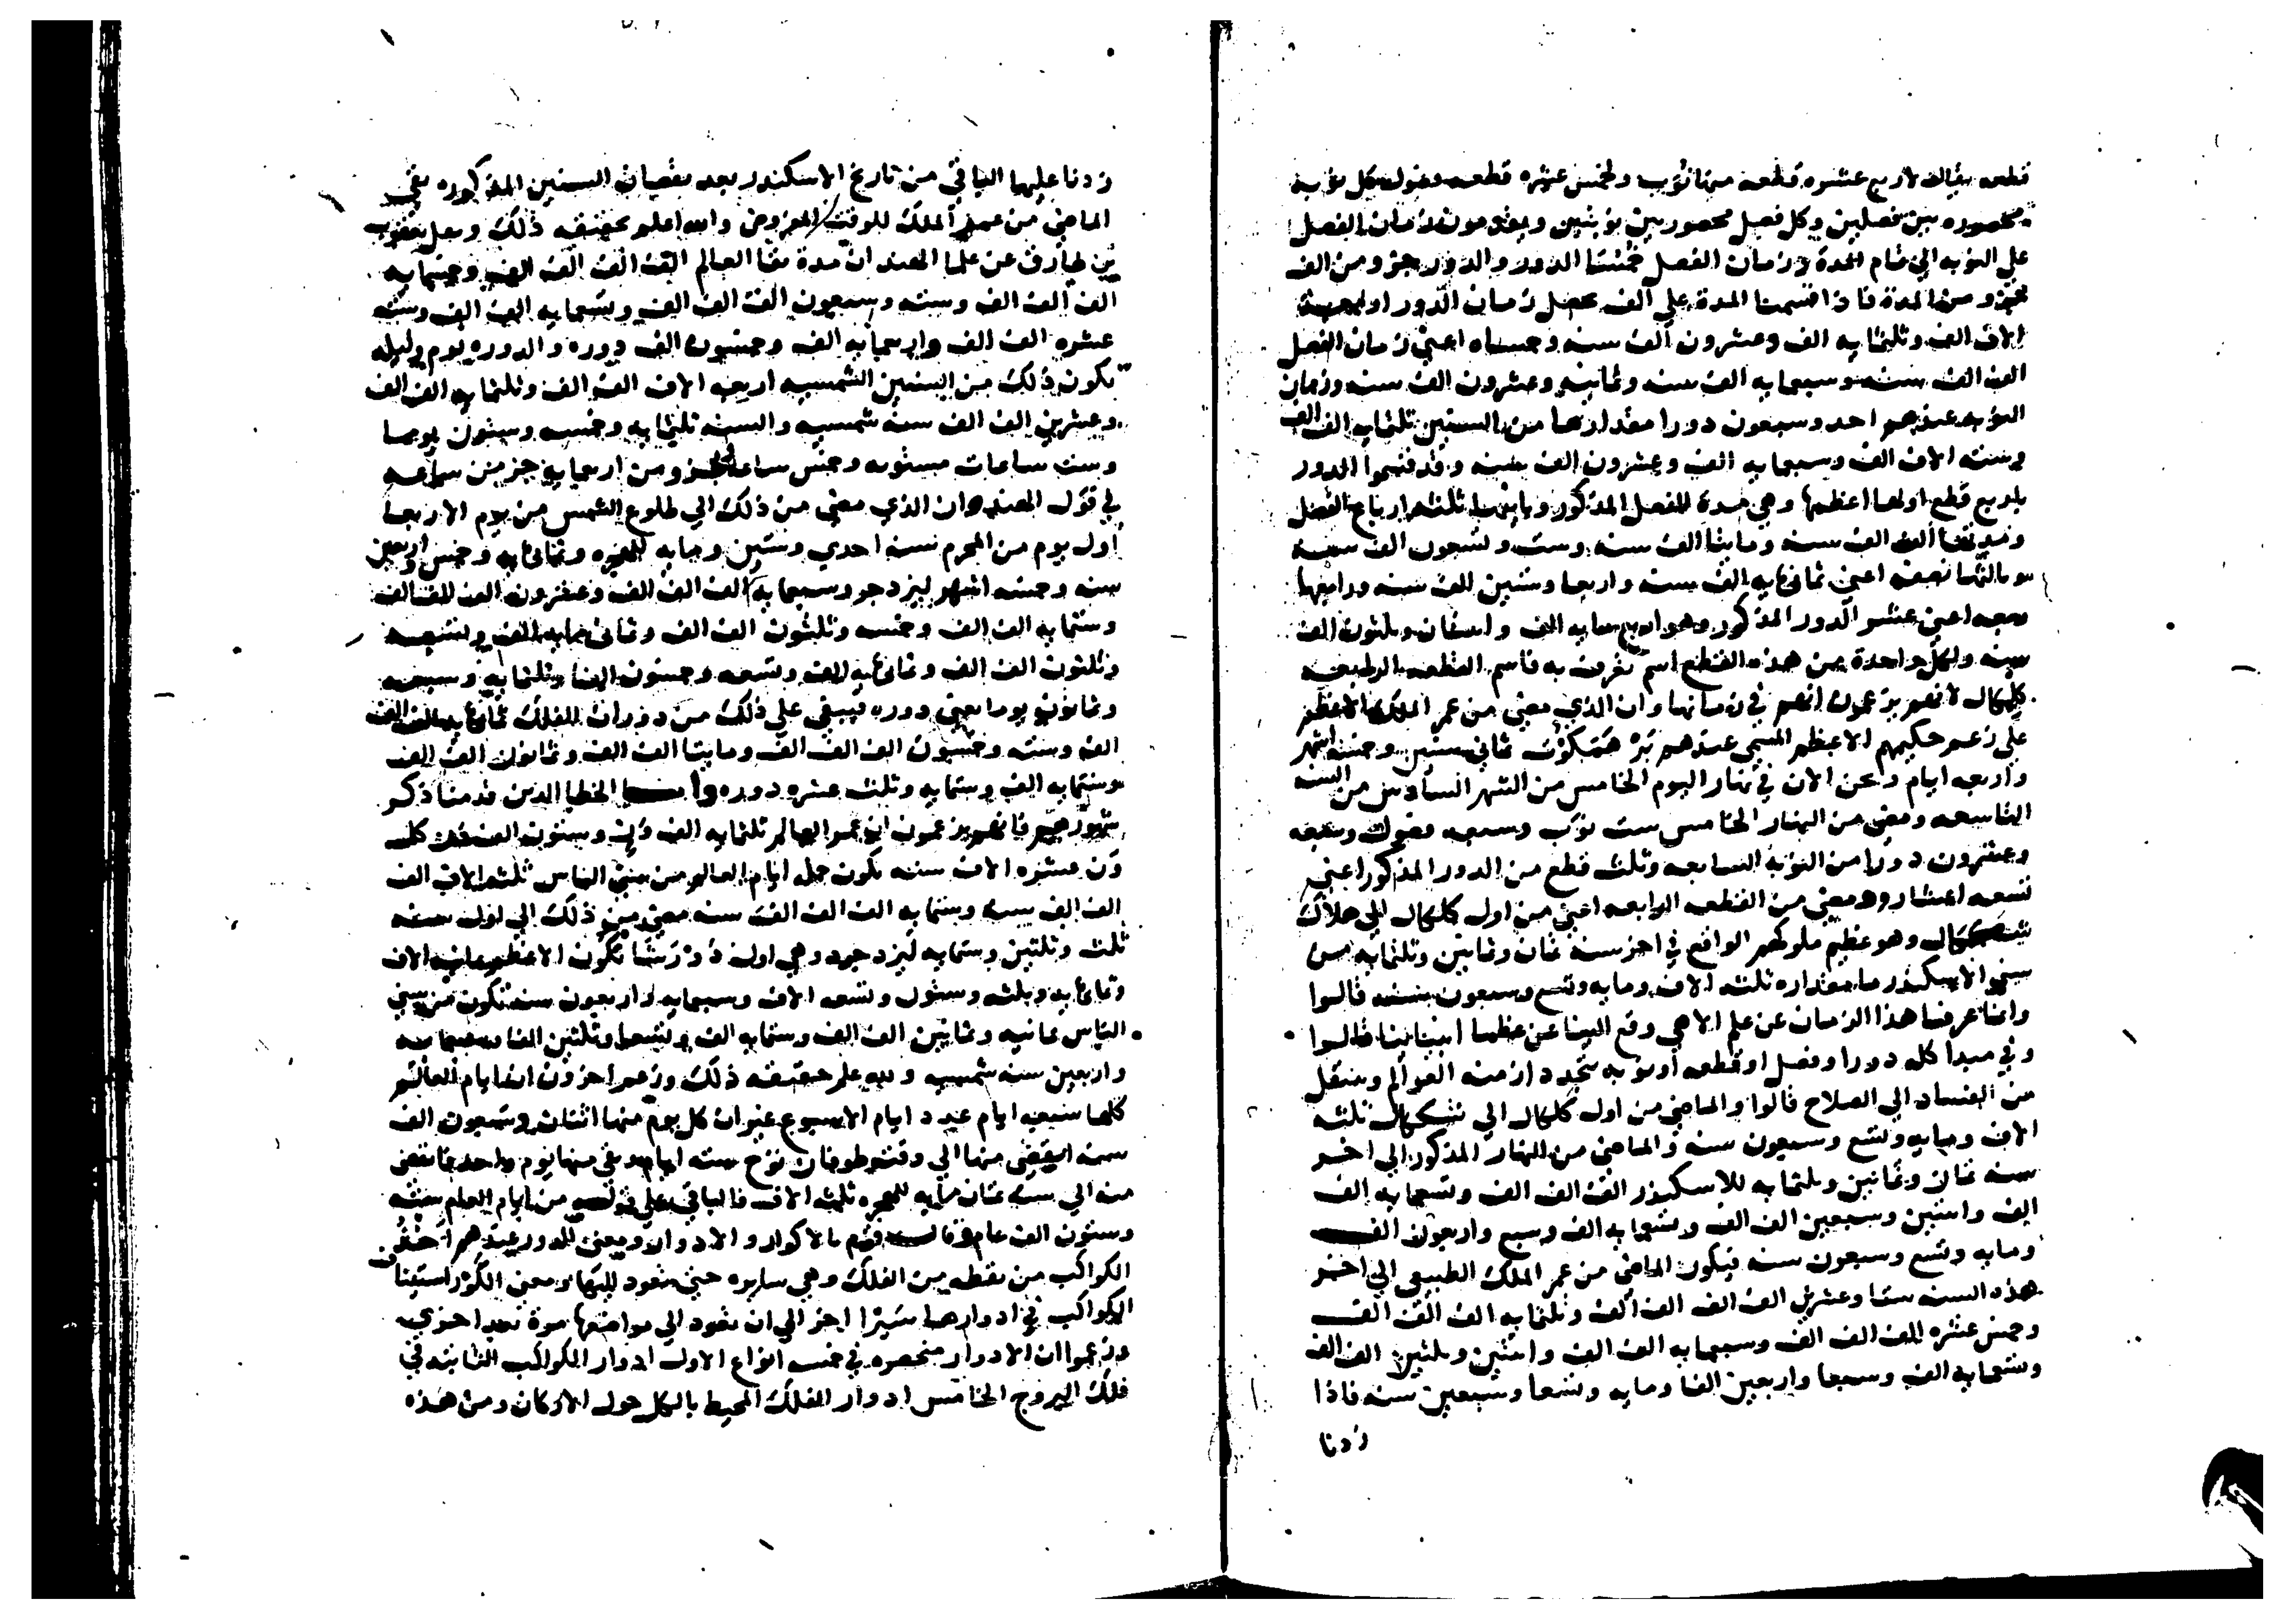 قطعه يقال لاربع عشره قطعه منها نوب ولخمس عشره قطعه وفول كل نوبه
محصوره بين فصلين وكل فصل محصور بين نوبتين ويقدمون زمان الفصل
على النوبه الى تمام المدة وزمان الفصل خمسا الدور والدور جزو من الف
جزو من المدة فاذا قسمنا المدة على الف يحصل زمان الدور اربعة
الاف الف وثلثمايه الف وعشرون الف سنه وخمساه اعني زمان الفصل
الف الف سنه وسبعمايه الف سنه وثمانيه وعشرون الف سنه وزمان
النوبه عندهم احد وسبعون دورا مقدارها من السنين ثلثمايه الف الف
وسته الاف الف وسبعمايه الف وعشرون الف سنه وقد قسموا الدور
باربع قطع اولها اعظمها وهي مدة الفصل المذكور وثانيها ثلثه ارباع الفصل
ومدتها الف الف سنه ومايتا الف سنه وست وتسعون الف سنه
وثالثها نصفه اعني ثمانمايه الف سنه واربعا وستين الف سنه ورابعها
ربعه اعني عشر الدور المذكور وهو اربعمايه الف واثنان وثلثون الف
سنه ولكل واحدة من هذه القطع اسم تعرف به فاسم القطعه الرابعه
كلكال لانهم يزعمون انهم في زمانها وان الذي مضى من عمر الملك الاعظم
على زعم حكيمهم الاعظم المسمى عندهم برهمكوت ثماني سنين وخمسه اشهر
واربعه ايام ونحن الان في نهار اليوم الخامس من الشهر السادس من السنه
التاسعه ومضى من النهار الخامس ست نوب وسبعه فصول وسبعه
وعشرون دورا من النوبه السابعه وثلث قطع من الدور المذكور اعني
تسعه اعشاره ومضى من القطعه الرابعه اعني من اول كلكال الى هلاك
شككال وهو عظيم ملوكهم الواقع في اخر سنه ثمان وثمانين وثلثمايه من
سني الاسكندر ما مقداره ثلثه الاف ومايه وتسع وسبعون سنه قالوا
وانما عرفنا هذا الزمان عن علم الاهي وقع الينا عن عظما انبيائنا قالوا
وفي مبدا كل دور او فصل او قطعه او نوبه تجدد ازمنه العوالم وينتقل
من الفساد الى الصلاح قالوا والماضي من اول كلكال الى شككال ثلثه
الاف ومايه وتسع وسبعون سنه والماضي من النهار المذكور الى اخر
سنه ثمان وثمانين وثلثمايه للاسكندر الف الف الف وتسعمايه الف
الف واثنين وسبعين الف الف وتسعمايه الف وسبع واربعون الف
ومايه وتسع وسبعون سنه فيكون الماضي من عمر الملك الطبيعي الى اخر
هذه السنه ستا وعشرين الف الف الف الف وثلثمايه الف الف الف
وخمس عشره الف الف الف وسبعمايه الف الف واثنين وثلثين الف الف
وتسعمايه الف وسبعا واربعين الفا ومايه وتسعا وسبعين سنه فاذا
زدنا
زدنا عليها الباقي من تاريخ الاسكندر بعد نقصان السنين المذكوره بقي
الماضي من عمر الملك للوقت المفروض والله اعلم بحقيقه ذلك ونقل يعقوب
بن طارق عن علما الهند ان مدة بقا العالم الف الف الف الف وخمسمايه
الف الف الف وسته وسبعون الف الف الف وتسعمايه الف الف وسته
عشره الف الف واربعمايه الف وخمسون الف دوره والدوره يوم وليله
يكون ذلك من السنين الشمسيه اربعه الاف الف الف وثلثمايه الف الف
وعشرين الف الف سنه شمسيه والسنه ثلثمايه وخمسه وستون يوما
وست ساعات مستويه وخمس ساعه وجزو من اربعمايه جز من ساعه
في قول الهند وان الذي مضى من ذلك الى طلوع الشمس من يوم الاربعا
اول يوم من المحرم سنه احدي وستين ومايه للهجره وثمانمايه وخمس واربعين
سنه وخمسه اشهر ليزدجرد وسبعمايه الف الف الف وعشرون الف الف الف
وستمايه الف الف وخمسه وثلثون الف الف وثماني مايه الف وتسعه
وثلثون الف الف وثمانمايه الف وتسعه وخمسون الفا وثلثمايه وسبعه
وثمانون يوما يعني دوره فيبقى على ذلك من دوران الفلك ثمانمايه الف الف
الف وسته وخمسون الف الف الف ومايتا الف الف وثمانون الف الف
وستمايه الف وستمايه وثلث عشره دوره واما الخطا الذين قدمنا ذكر
شهورهم فانهم يزعمون ان عمر العالم ثلثمايه الف ون وستون الف ون كل
ون عشره الاف سنه تكون جمله ايام العالم من سني الناس ثلثه الاف الف
الف الف سنه وستمايه الف الف الف سنه مضى من ذلك الى اول سنه
ثلث وثلثين وستمايه ليزدجرد وهي اول دور شانكون الاعظم ثمانيه الاف
وثمانمايه وثلثه وستون ون وتسعه الاف وسبعمايه واربعون سنه تكون من سني
الناس ثمانيه وثمانين الف الف وستمايه الف وتسعا وثلثين الفا وسبعمايه
واربعين سنه شمسيه والله اعلم حقيقه ذلك وزعم اخرون ان ايام العالم
كلها سبعه ايام عدد ايام الاسبوع غير ان كل يوم منها اثنان وسبعون الف
سنه انقضى منها الى وقت طوفان نوح سته ايام وبقي منها يوم واحد فانقضى
منه الى سنه ثمان مايه للهجره ثلثه الاف فالباقي على قولهم من ايام العلم سته
وستون الف عام وقالت قوم بالاكوار والادوار ومعنى الدور عندهم اخذ
الكواكب من نقطه من الفلك وهي سايره حتى تعود اليها ومعنى الكور استيناف
الكواكب في ادوارها سيرا اخر الى ان تعود الى مواضعها مرة بعد اخرى
وزعموا ان الادوار منحصره في خمسه انواع الاول ادوار الكواكب الثابته في
فلك البروج الخامس ادوار الفلك المحيط بالكل حول الاركان ومن هذه